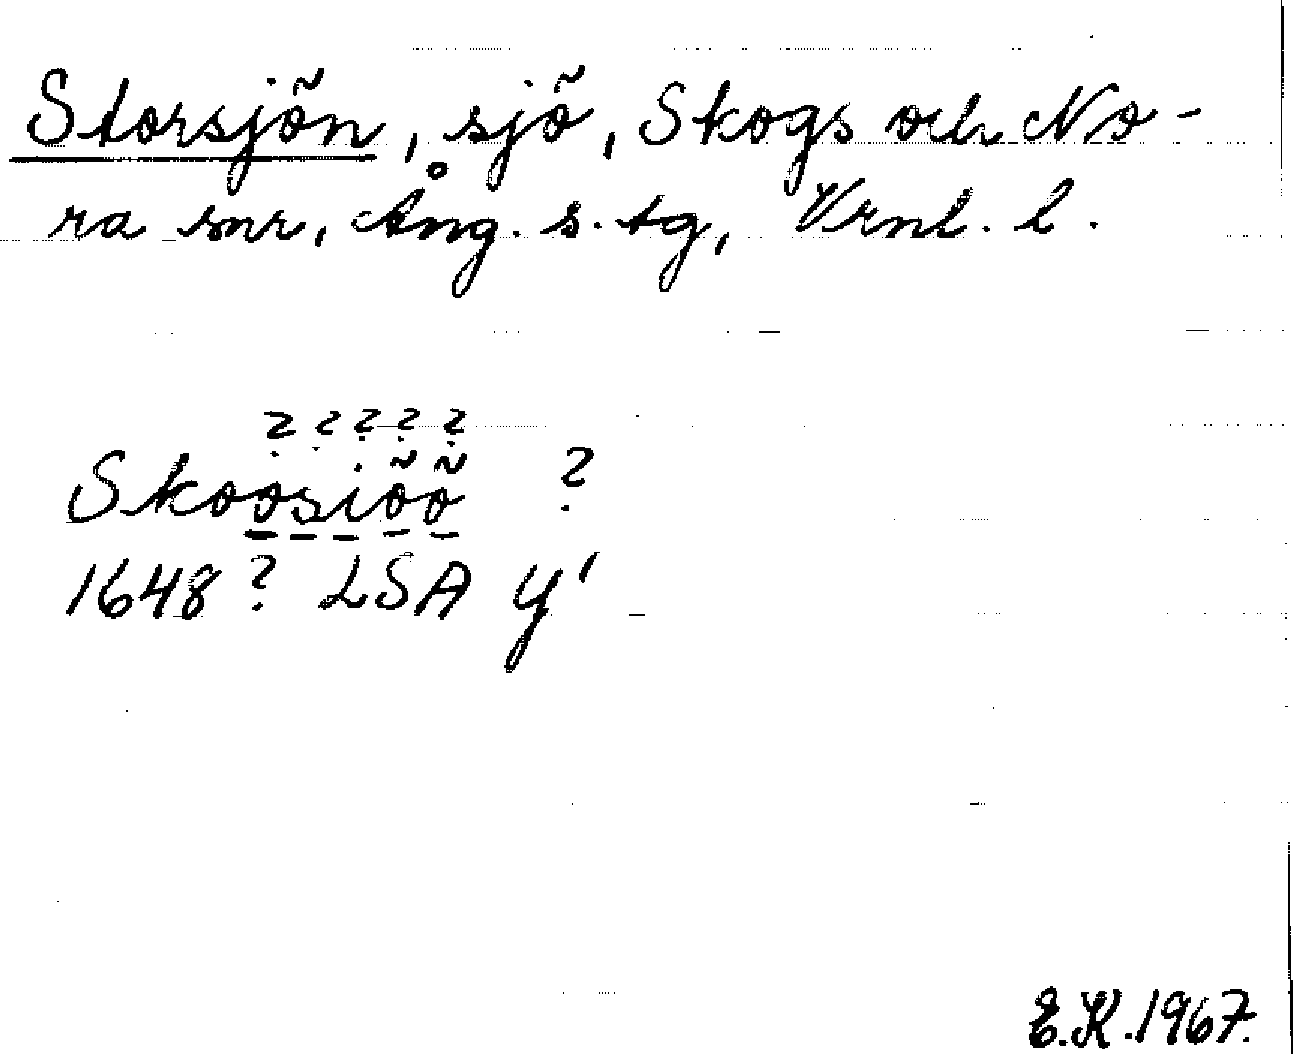 Storsjön, sjö, Skogs och No-
ra snr, Ång. s. tg, Vrnl. l.
? ? ? ? ?
Skoosiöö ?
1648? LSA Y'
E.K. 1967.